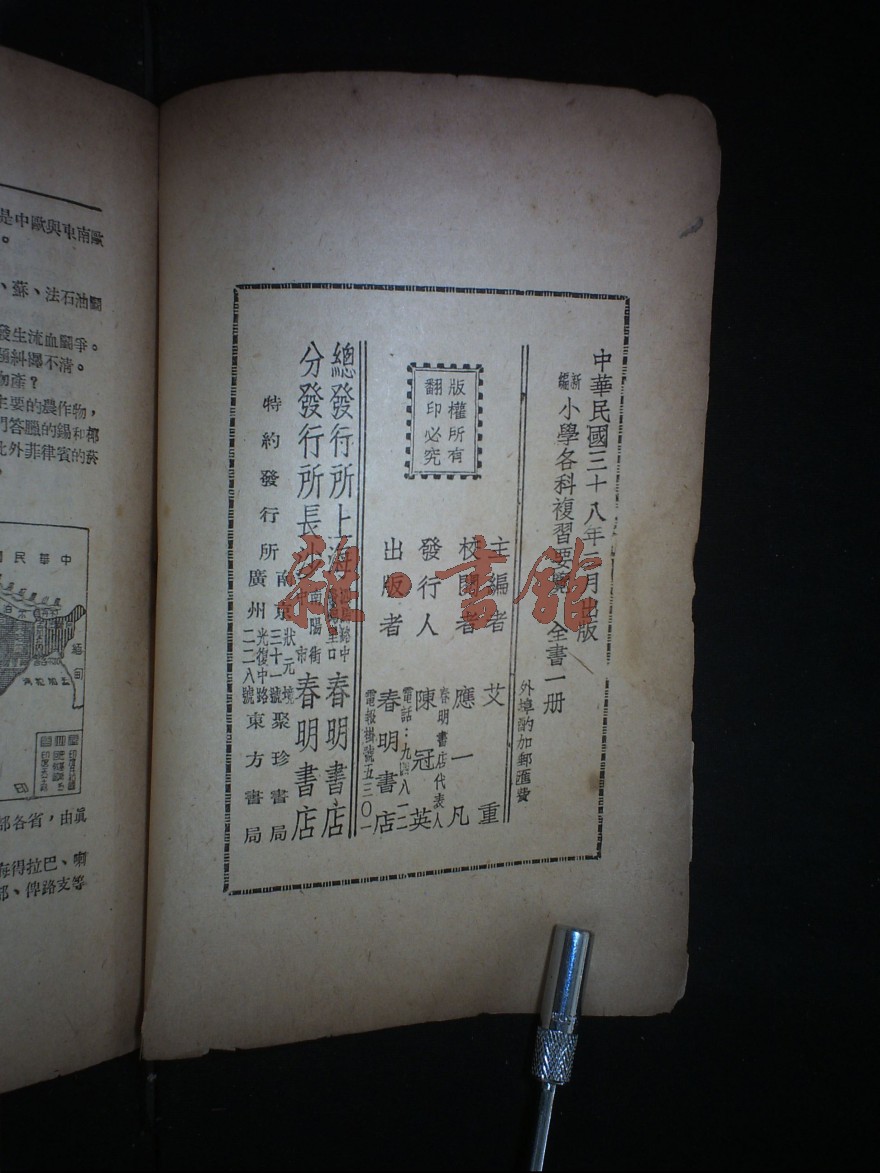 中華民國三十八年二月出版
新編 小學各科複習要覽 全書一册
外埠酌加郵匯費
版權所有
翻印必究
主編者 艾重
校閱者 應一凡
發行人 陳冠英
春明書店代表人
電話：九四八一二
出版者 春明書店
電報掛號五三〇一
總發行所 上海 春明書店
分發行所 長沙 南陽街 春明書店
特約發行所 南京 狀元境三十一號 聚珍書局
廣州 光復中路二二八號 東方書局
雜·書館
是中歐與東南歐
。
、蘇、法石油
發生流血鬭爭。
糾不清。
物產？
主要的農作物，
此外菲律賓的
中華民國
緬甸
印
部各省，由眞
海得拉巴、喇
部、俾路支等